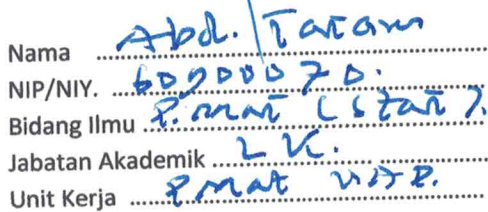 Nama Abd. Taram
NIP/NIY. 60900070.
Bidang Ilmu P. mat (Stat).
Jabatan Akademik L K.
Unit Kerja P mat